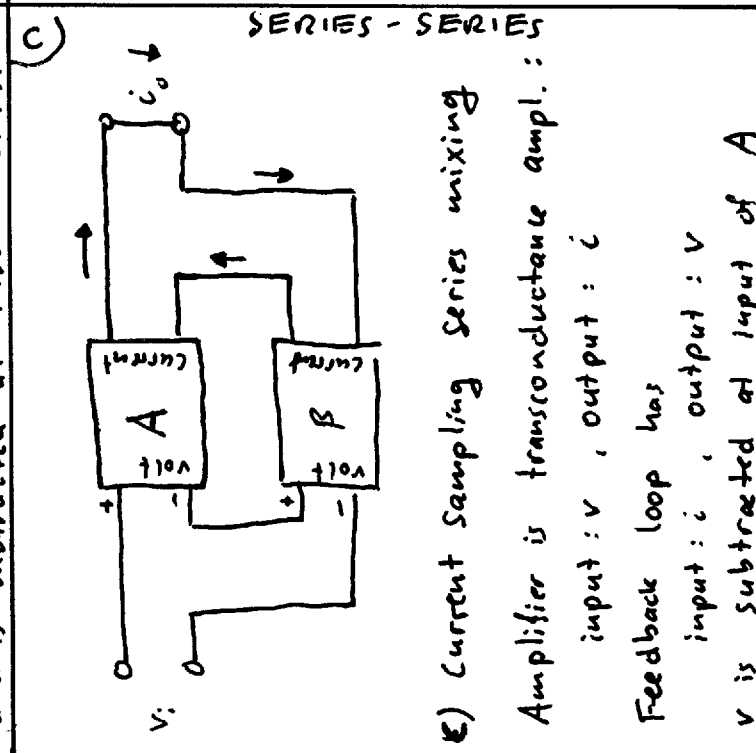 c)
SERIES - SERIES
i₀
Current
A
Volt
+
-
Current
β
Volt
+
-
vᵢ
c) Current sampling series mixing
Amplifier is transconductance ampl. :
input : v , output : i
Feedback loop has
input : i , output : v
v is subtracted at input of A